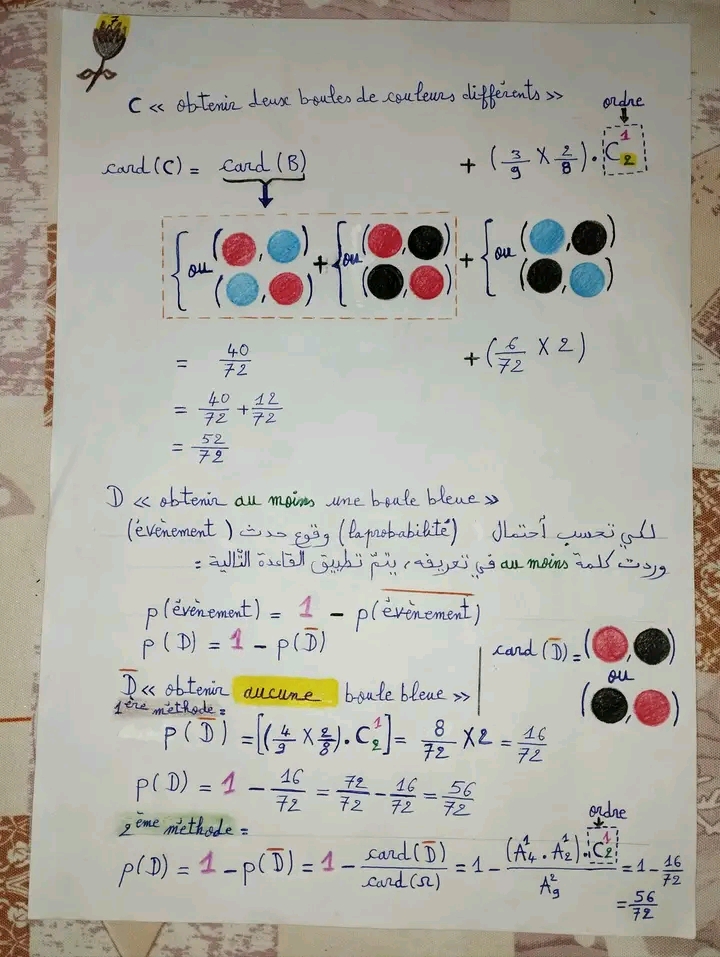 7
C « obtenir deux boules de couleurs différents »
ordre
card(C) = card(B) + (3/9 X 2/8) . C₂¹
{ ou ( , ) ( , ) + { ou ( , ) ( , ) + { ou ( , ) ( , )
= 40/72 + (6/72 X 2)
= 40/72 + 12/72
= 52/72
D « obtenir au moins une boule bleue »
لكي تحسب أحتمال (la probabilité) وقوع حدث (évènement)
وردت كلمة au moins في تعريفه، يتمّ تطبيق القاعدة التّالية :
p(évènement) = 1 - p(évènement̅)
p(D) = 1 - p(D̅)
card(D̅) = ( , )
ou
( , )
D̅ « obtenir aucune boule bleue »
1ère méthode =
p(D̅) = [(4/9 X 2/8) . C₂¹] = 8/72 X 2 = 16/72
p(D) = 1 - 16/72 = 72/72 - 16/72 = 56/72
2ème méthode =
ordre
p(D) = 1 - p(D̅) = 1 - card(D̅)/card(Ω) = 1 - (A₄¹ . A₂¹) . C₂¹/A₉² = 1 - 16/72
= 56/72